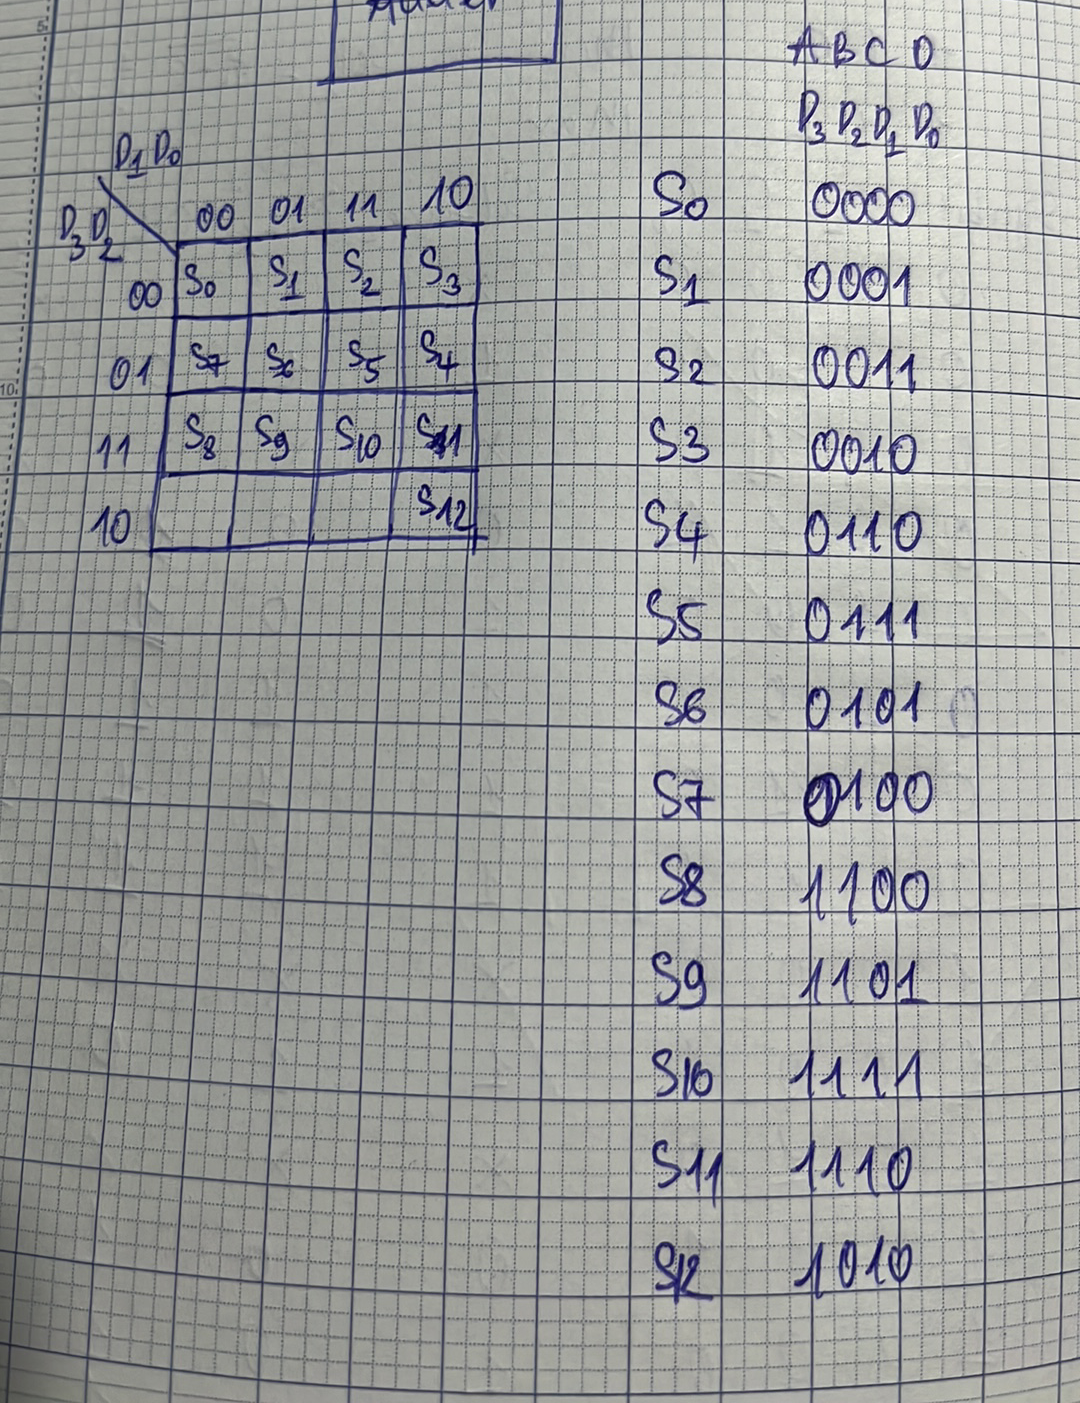 A B C D
D3 D2 D1 D0
D1 D0
D3 D2
00 01 11 10
00 S0 S1 S2 S3
01 S7 S6 S5 S4
11 S8 S9 S10 S11
10 S12
S0 0000
S1 0001
S2 0011
S3 0010
S4 0110
S5 0111
S6 0101
S7 0100
S8 1100
S9 1101
S10 1111
S11 1110
S12 1010
5
10